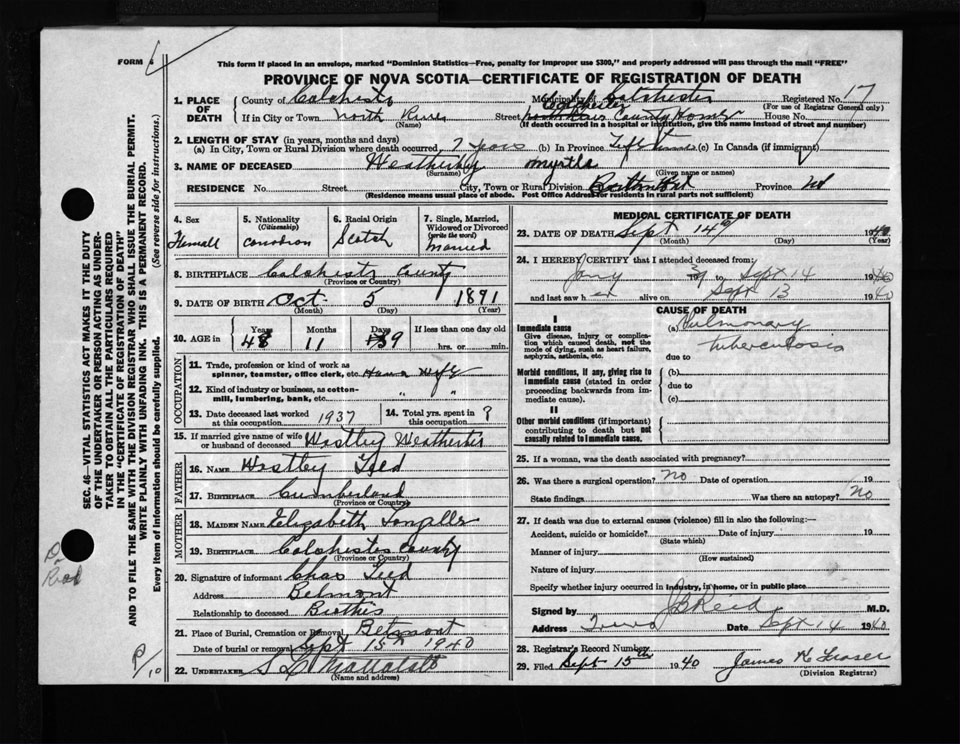 FORM 6
This form if placed in an envelope, marked "Dominion Statistics—Free, penalty for improper use $300," and properly addressed will pass through the mail "FREE"
PROVINCE OF NOVA SCOTIA—CERTIFICATE OF REGISTRATION OF DEATH
1. PLACE OF DEATH
County of Colchester Municipality of Colchester Registered No. 17
(For use of Registrar General only)
If in City or Town North River Street Colchester County Home House No.
(Name) (If death occurred in a hospital or institution, give the name instead of street and number)
2. LENGTH OF STAY (in years, months and days)
(a) In City, Town or Rural Division where death occurred, 7 (b) In Province Life time (c) In Canada (if immigrant)
3. NAME OF DECEASED Weatherby Myrtle
(Surname) (Given name or names)
RESIDENCE No. Street City, Town or Rural Division Province NS
(Residence means usual place of abode. Post Office Address for residents in rural parts not sufficient)
4. Sex Femall
5. Nationality (Citizenship)
6. Racial Origin Scotch
7. Single, Married, Widowed or Divorced (write the word) Married
8. BIRTHPLACE Colchestr County
(Province or Country)
9. DATE OF BIRTH Oct 5 1891
(Month) (Day) (Year)
10. AGE in Years 48 Months 11 Days 9 If less than one day old hrs. or min.
OCCUPATION
11. Trade, profession or kind of work as spinner, teamster, office clerk, etc. House Wife
12. Kind of industry or business, as cotton-mill, lumbering, bank, etc. " "
13. Date deceased last worked at this occupation 1937
14. Total yrs. spent in ?
15. If married give name of wife or husband of deceased Westley Weatherbie
FATHER
16. NAME Westley Teed
17. BIRTHPLACE Cumberland
(Province or Country)
MOTHER
18. MAIDEN NAME Elizabeth
19. BIRTHPLACE Colchester County
(Province or Country)
20. Signature of informant Chas Teed
Address Belmont
Relationship to deceased
21. Place of Burial, Cremation or Removal Belmont
Date of burial or removal Sept 15th 1940
22. UNDERTAKER
(Name and address)
MEDICAL CERTIFICATE OF DEATH
23. DATE OF DEATH Sept 14th 1940
(Month) (Day) (Year)
24. I HEREBY CERTIFY that I attended deceased from:
Jany 39 to Sept 14 1940
and last saw h er alive on Sept 13 1940
CAUSE OF DEATH
I
Immediate cause
Give disease, injury or complication which caused death, not the mode of dying, such as heart failure, asphyxia, asthenia, etc.
(a) Pulmonary
tuberculosis
due to
Morbid conditions, if any, giving rise to immediate cause (stated in order proceeding backwards from immediate cause).
(b)
due to
(c)
II
Other morbid conditions (if important) contributing to death but not causally related to immediate cause.
25. If a woman, was the death associated with pregnancy?
26. Was there a surgical operation? No Date of operation 19
State findings Was there an autopsy? No
27. If death was due to external causes (violence) fill in also the following:—
Accident, suicide or homicide? Date of injury 19
(State which)
Manner of injury
(How sustained)
Nature of injury
Specify whether injury occurred in industry, in home, or in public place
Signed by J B Reid M.D.
Address Truro Date Sept 14 1940
28. Registrar's Record Number
29. Filed Sept 15th 1940 James H Fraser
(Division Registrar)
SEC. 46—VITAL STATISTICS ACT MAKES IT THE DUTY
OF THE UNDERTAKER OR PERSON ACTING AS UNDER-
TAKER TO OBTAIN ALL THE PARTICULARS REQUIRED
IN THE "CERTIFICATE OF REGISTRATION OF DEATH"
AND TO FILE THE SAME WITH THE DIVISION REGISTRAR WHO SHALL ISSUE THE BURIAL PERMIT.
WRITE PLAINLY WITH UNFADING INK. THIS IS A PERMANENT RECORD.
Every item of Information should be carefully supplied. (See reverse side for instructions.)
Reid
P/10